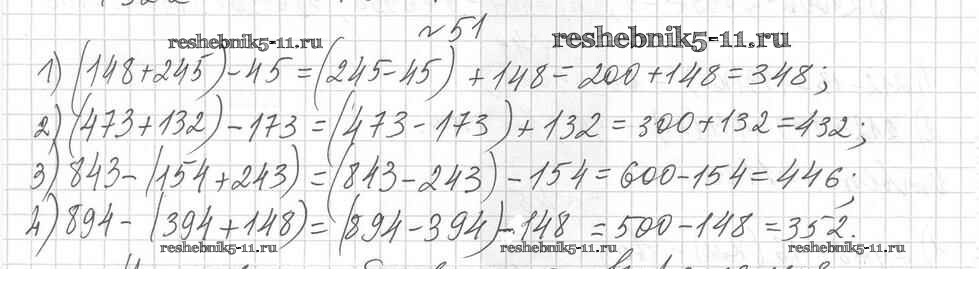 №51
reshebnik5-11.ru reshebnik5-11.ru
1) (148+245)-45=(245-45)+148=200+148=348;
2) (473+132)-173=(473-173)+132=300+132=432;
3) 843-(154+243)=(843-243)-154=600-154=446;
4) 894-(394+148)=(894-394)-148=500-148=352.
reshebnik5-11.ru reshebnik5-11.ru reshebnik5-11.ru